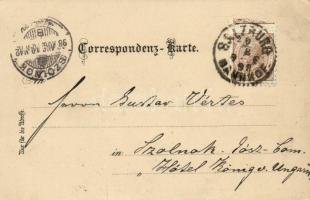 Correspondenz-Karte.
SALZBURG
BAHNHOF
SZOLNOK
98 AUG
Nur für die Adresse.
Herrn Gustav Vértes
in Szolnok Jász-Com.
"Hôtel König v. Ungarn"